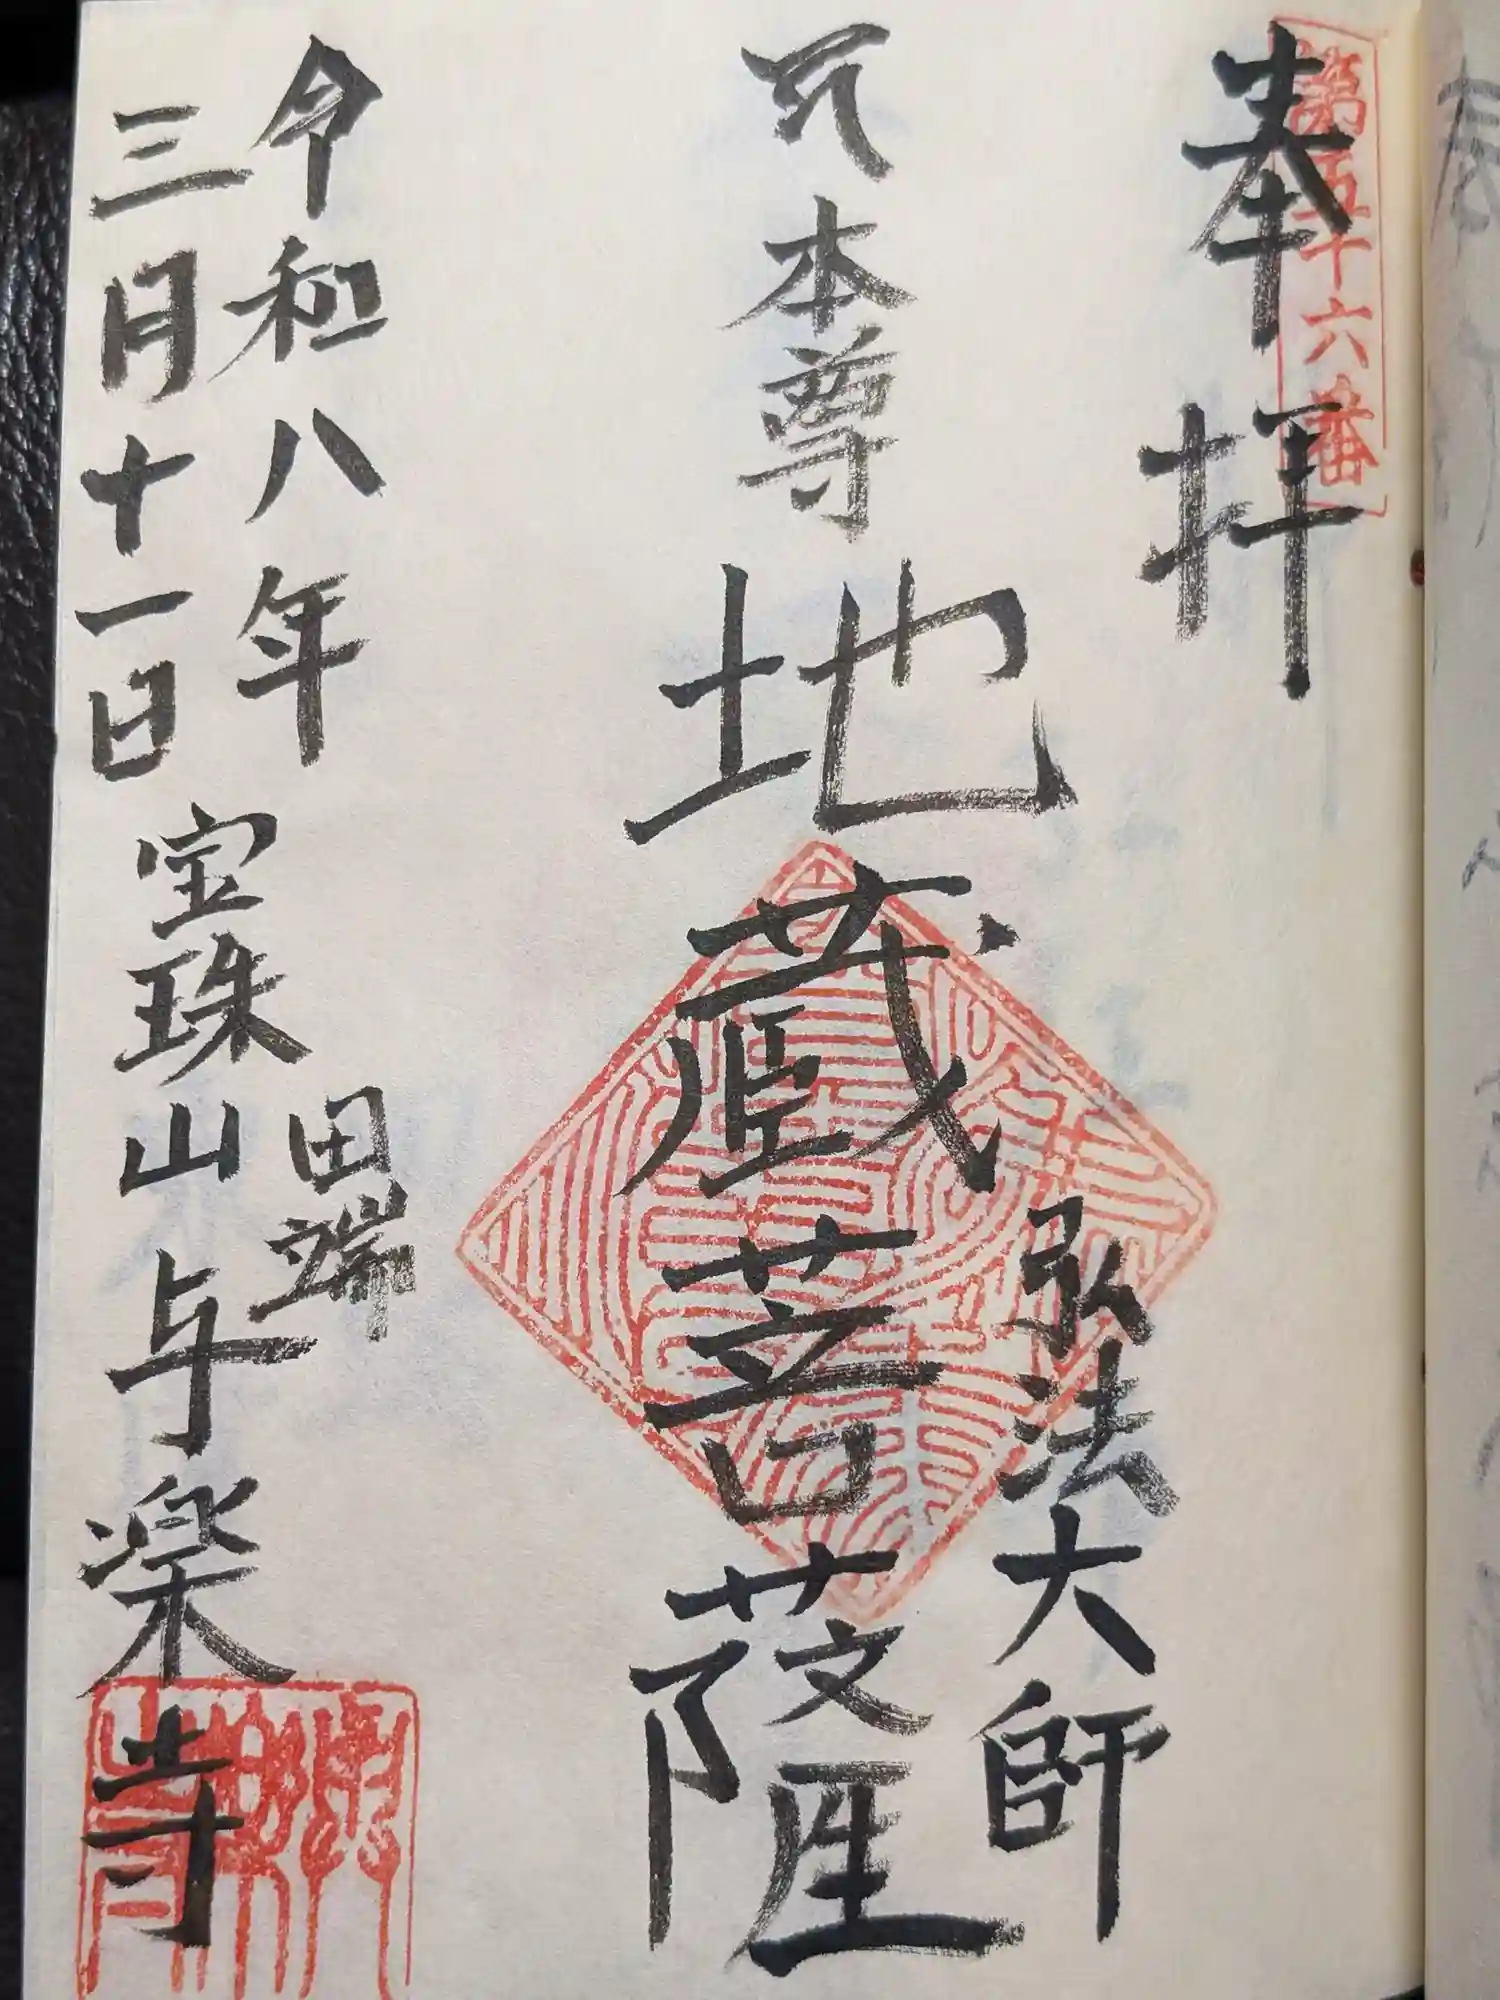 奉拝
第五十六番
本尊 地蔵菩薩
弘法大師
令和八年
三月十一日
田端
宝珠山 与楽寺